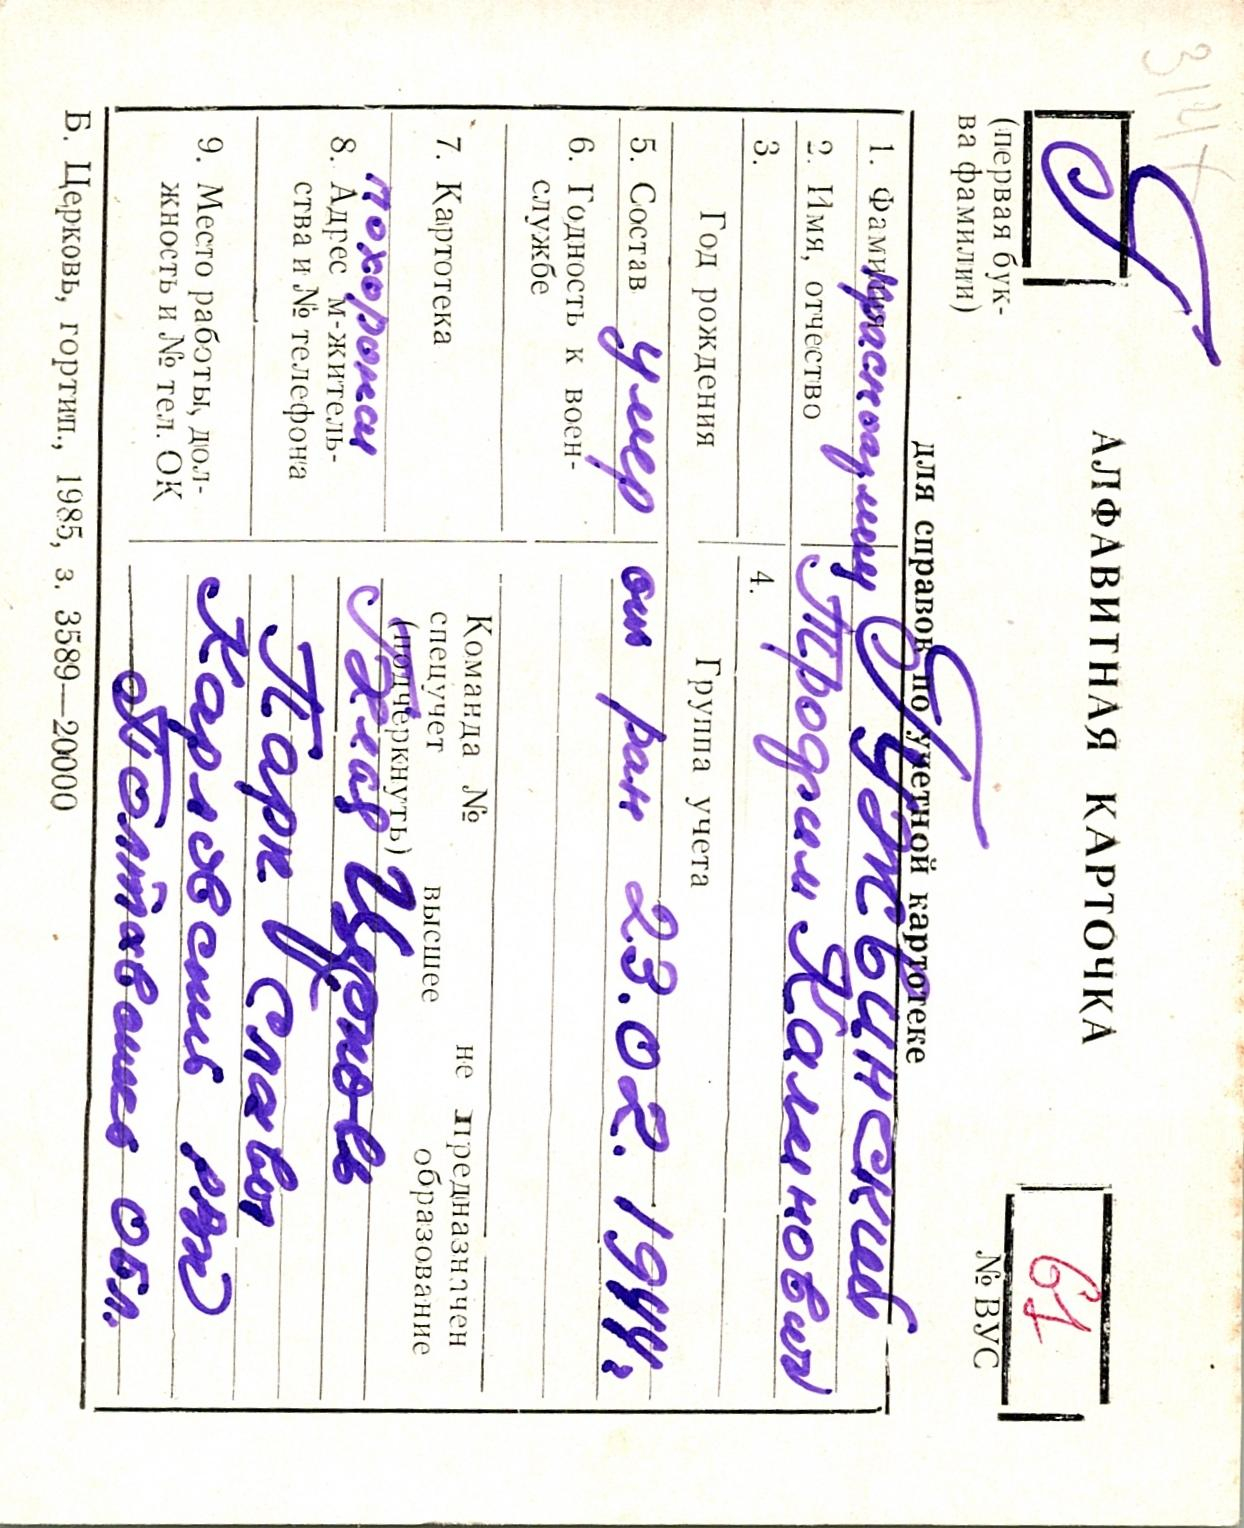 314
Г
(первая бук-
ва фамилии)
АЛФАВИТНАЯ КАРТОЧКА
61
№ ВУС
для справок по учетной картотеке
1. Фамилия красноармеец Гужвинский
2. Имя, отчество Трофим Калинович
3.
4.
Год рождения
Группа учета
5. Состав умер от ран 23.02.1944 г
6. Годность к воен-
службе
7. Картотека
Команда № не предназначен
спецучет высшее образование
(подчеркнуть)
похоронен
8. Адрес м-житель-
ства и № телефона
Парк Славы
9. Место работы, дол-
жность и № тел. ОК
Карловский
Полтавская обл.
Б. Церковь, гортип., 1985, з. 3589—20000